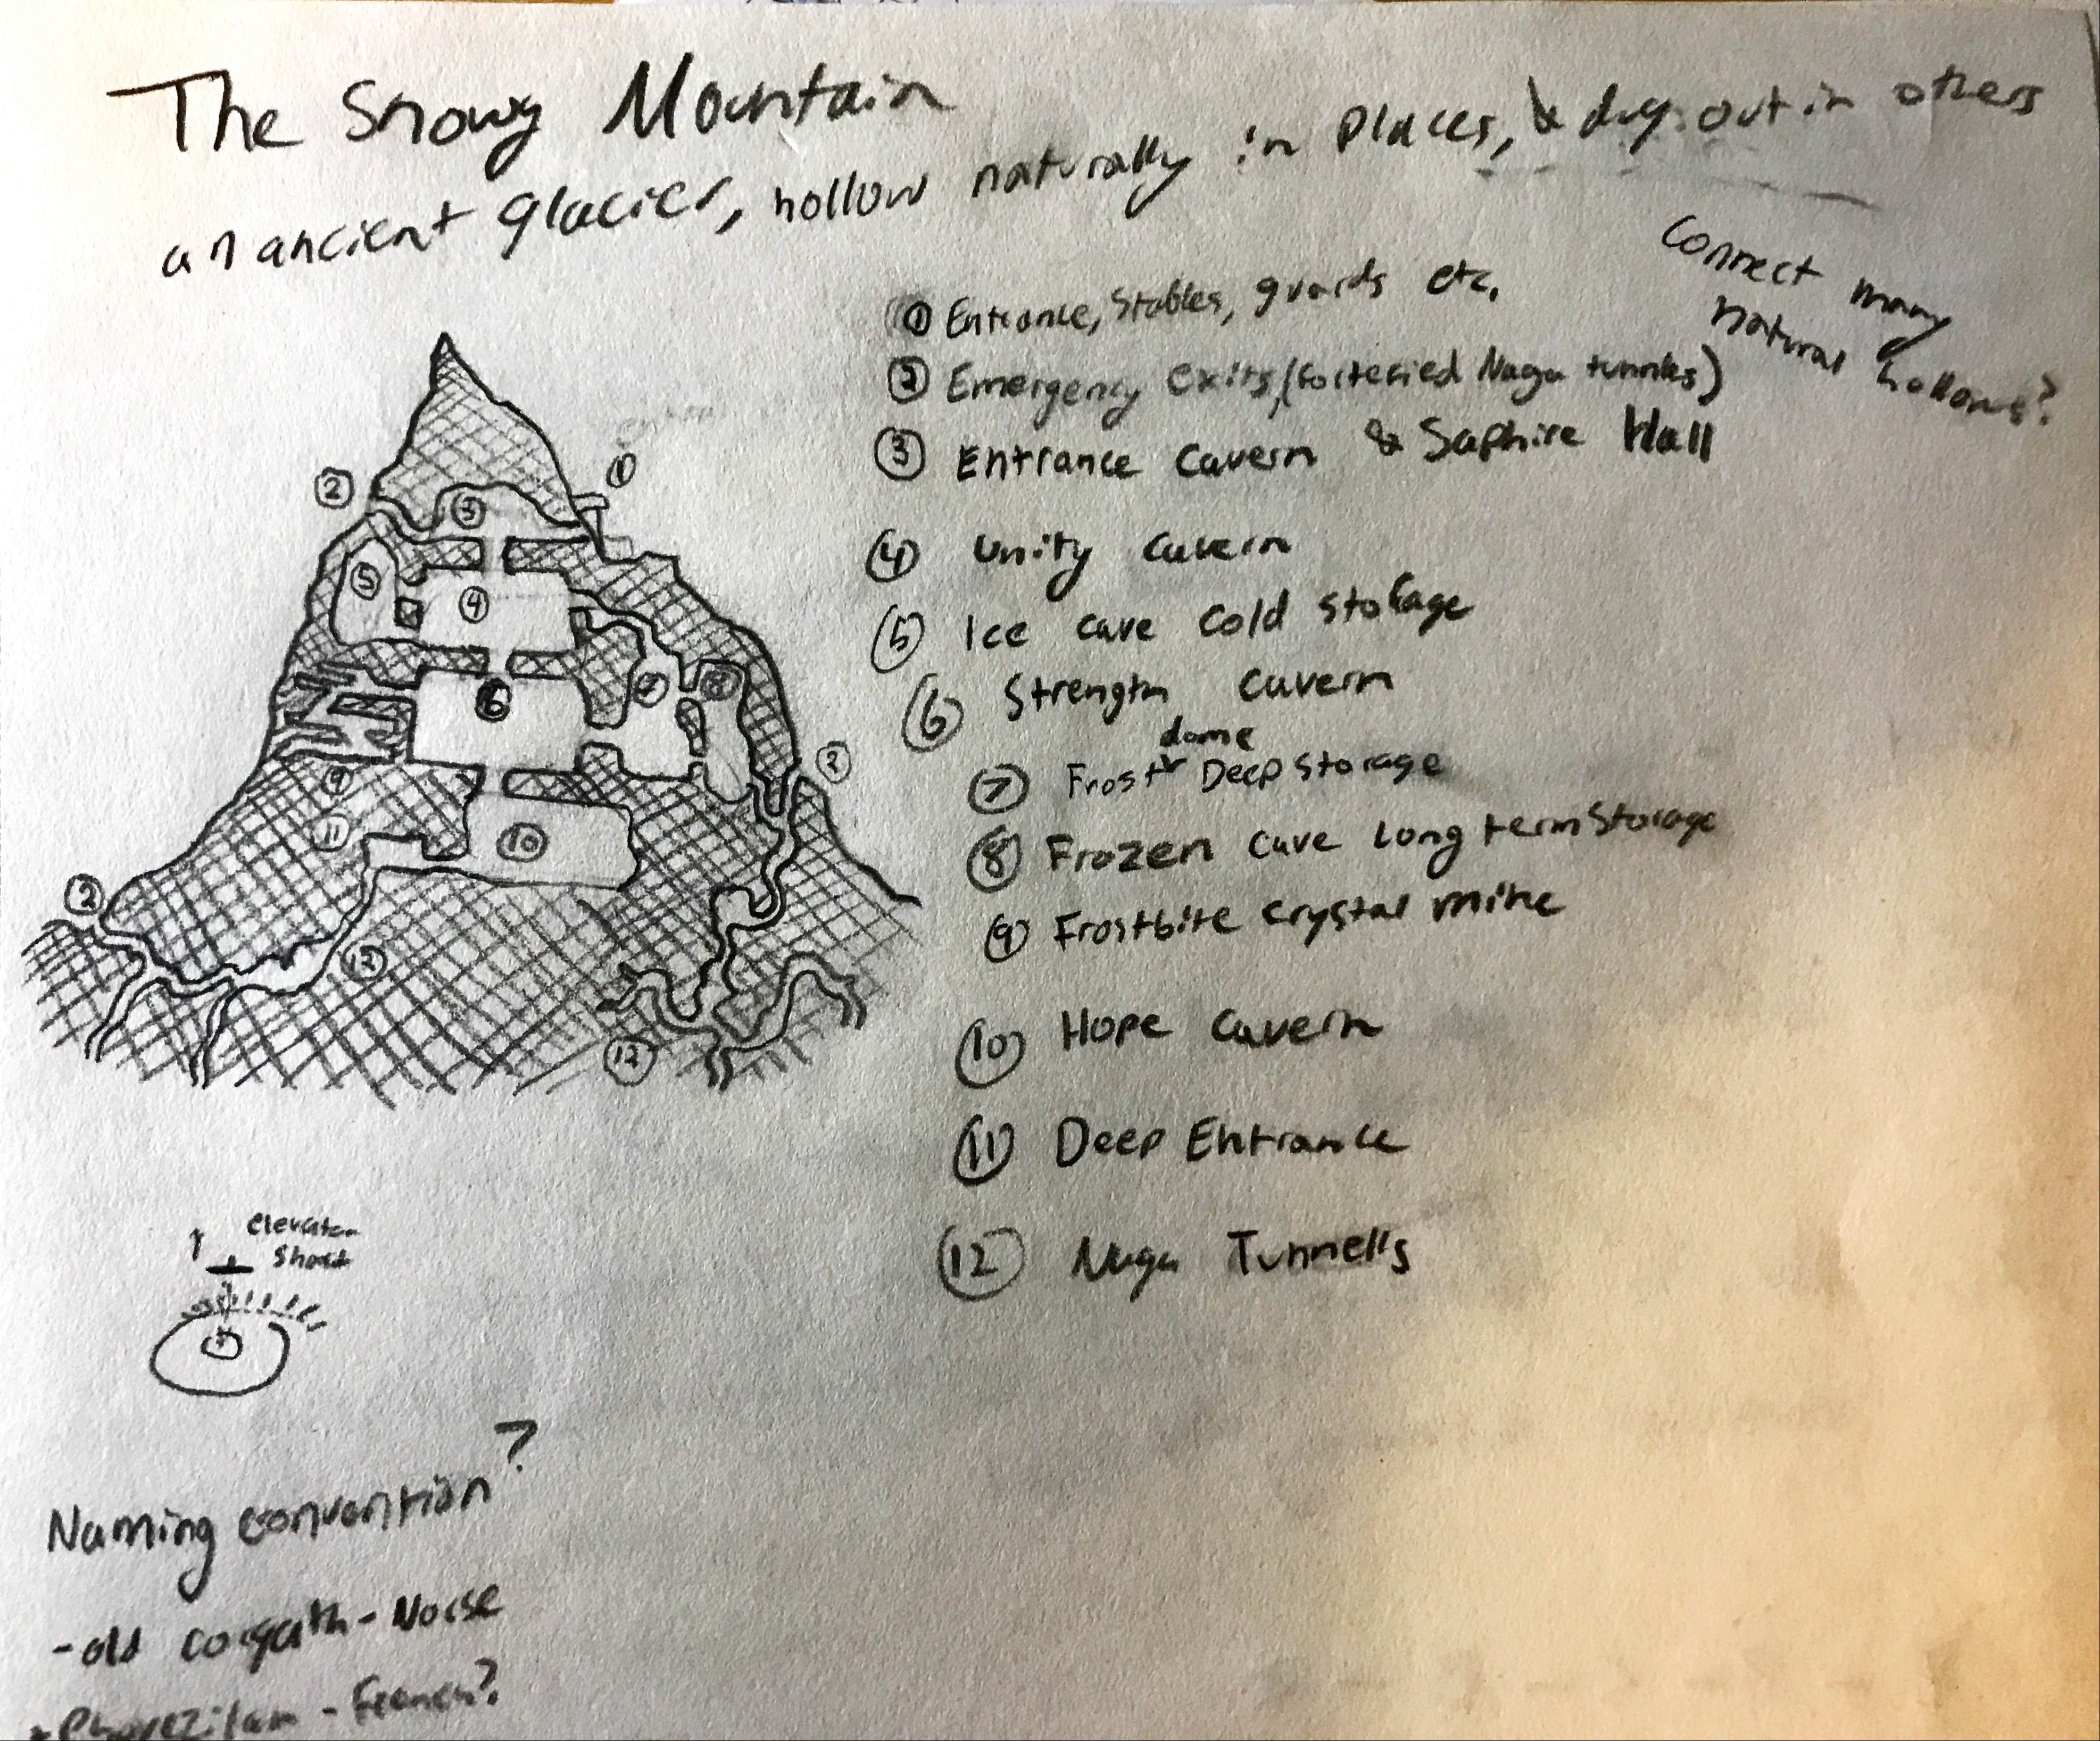 The Snowy Mountain
an ancient glacier, hollow naturally in places, & dug out in others
Connect many
natural hollows?
① Entrance, Stables, guards etc.
② Emergency exits, (fortefied Naga tunnles)
③ Entrance Cavern & Saphire Hall
④ Unity Cavern
⑤ Ice cave cold storage
⑥ Strength Cavern
dome
⑦ Frost Deep storage
⑧ Frozen cave Long term Storage
⑨ Frostbite crystal mine
⑩ Hope Cavern
⑪ Deep Entrance
⑫ Naga Tunnells
①
②
③
⑤
④
⑥
⑦
⑧
②
⑨
⑪
⑩
②
⑫
⑫
elevator
Shaft
Naming convention?
- old - Norse
- French?